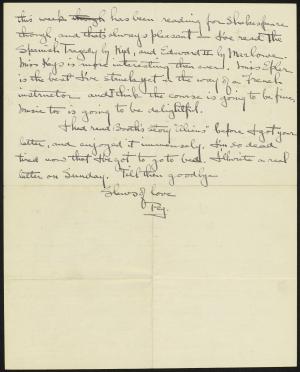 this week though has been reading for Shakespeare
though, and that's always pleasant — I've read the
Spanish Tragedy by Kyd, and Edward II by Marlowe.
Miss Keys is more interesting than ever. Miss
is the best I've struck yet in the way of a French
instructor and I think the course is going to be fine,
Music too is going to be delightful.
I had read Booth's story before I got your
letter, and enjoyed it immensely. I'm so dead
tired now that I've got to go to bed. I'll write a real
letter on Sunday. Till then goodbye
Slews of love
Peg.